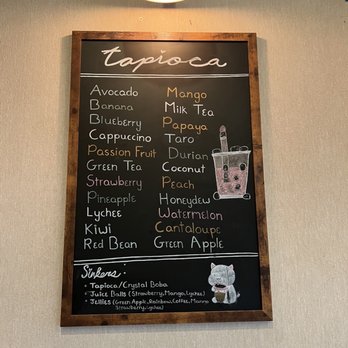 tapioca
Avocado
Banana
Blueberry
Cappuccino
Passion Fruit
Green Tea
Strawberry
Pineapple
Lychee
Kiwi
Red Bean
Mango
Milk Tea
Papaya
Taro
Durian
Coconut
Peach
Honeydew
Watermelon
Cantaloupe
Green Apple
Sinkers:
Tapioca/Crystal Boba
Juice Balls (Strawberry, Mango, Lychee)
Jellies (Green Apple, Rainbow, Coffee, Mango
Strawberry, Lychee)